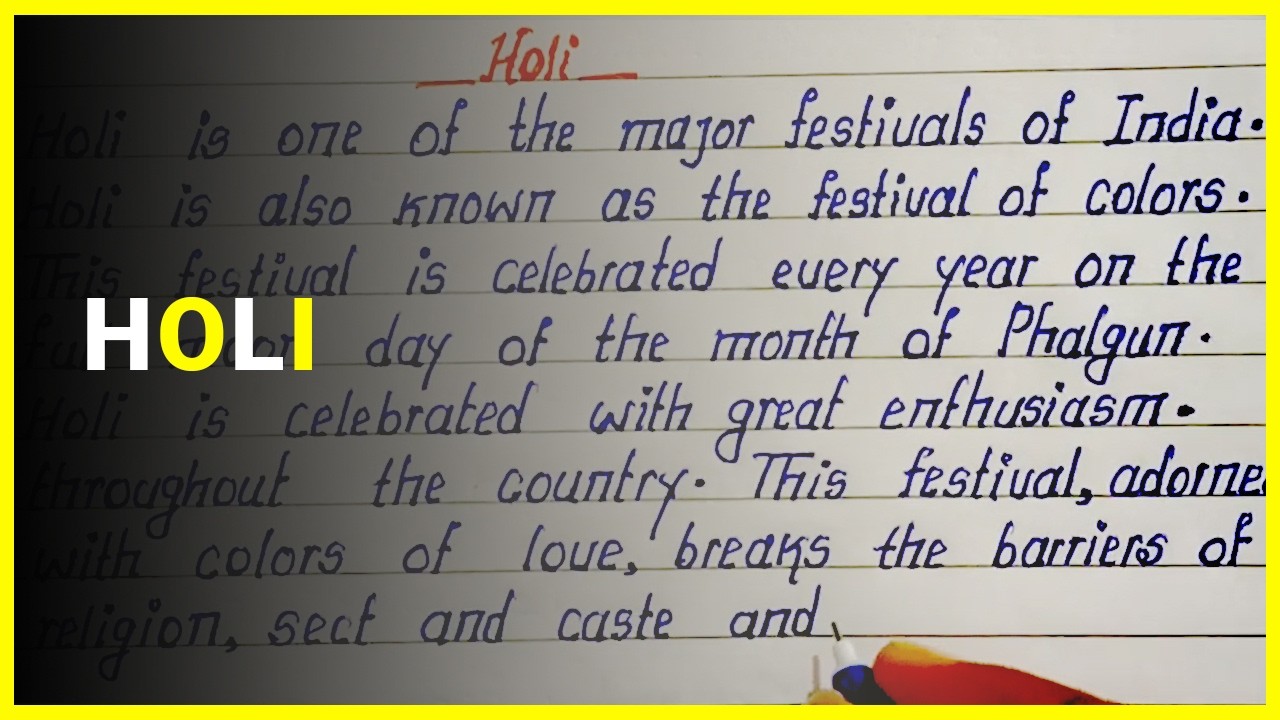 Holi
Holi is one of the major festivals of India.
Holi is also known as the festival of colors.
This festival is celebrated every year on the
HOLI
full moon day of the month of Phalgun.
Holi is celebrated with great enthusiasm.
throughout the country. This festival, adorne
with colors of love, breaks the barriers of
religion, sect and caste and